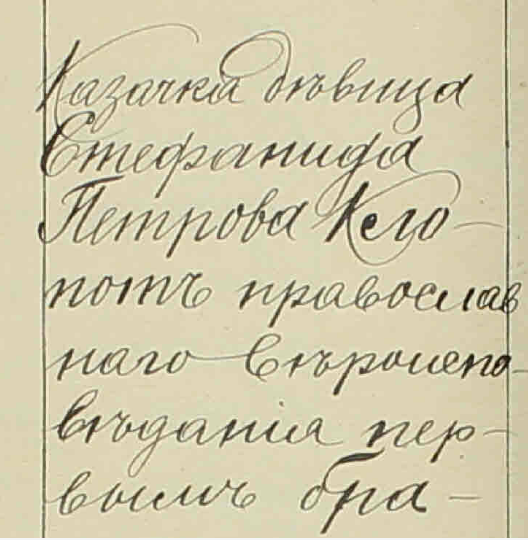 Казачка дѣвица
Стефанида
Петрова Кло-
потъ православ
наго вѣроиспо-
вѣданія пер-
вымъ бра-